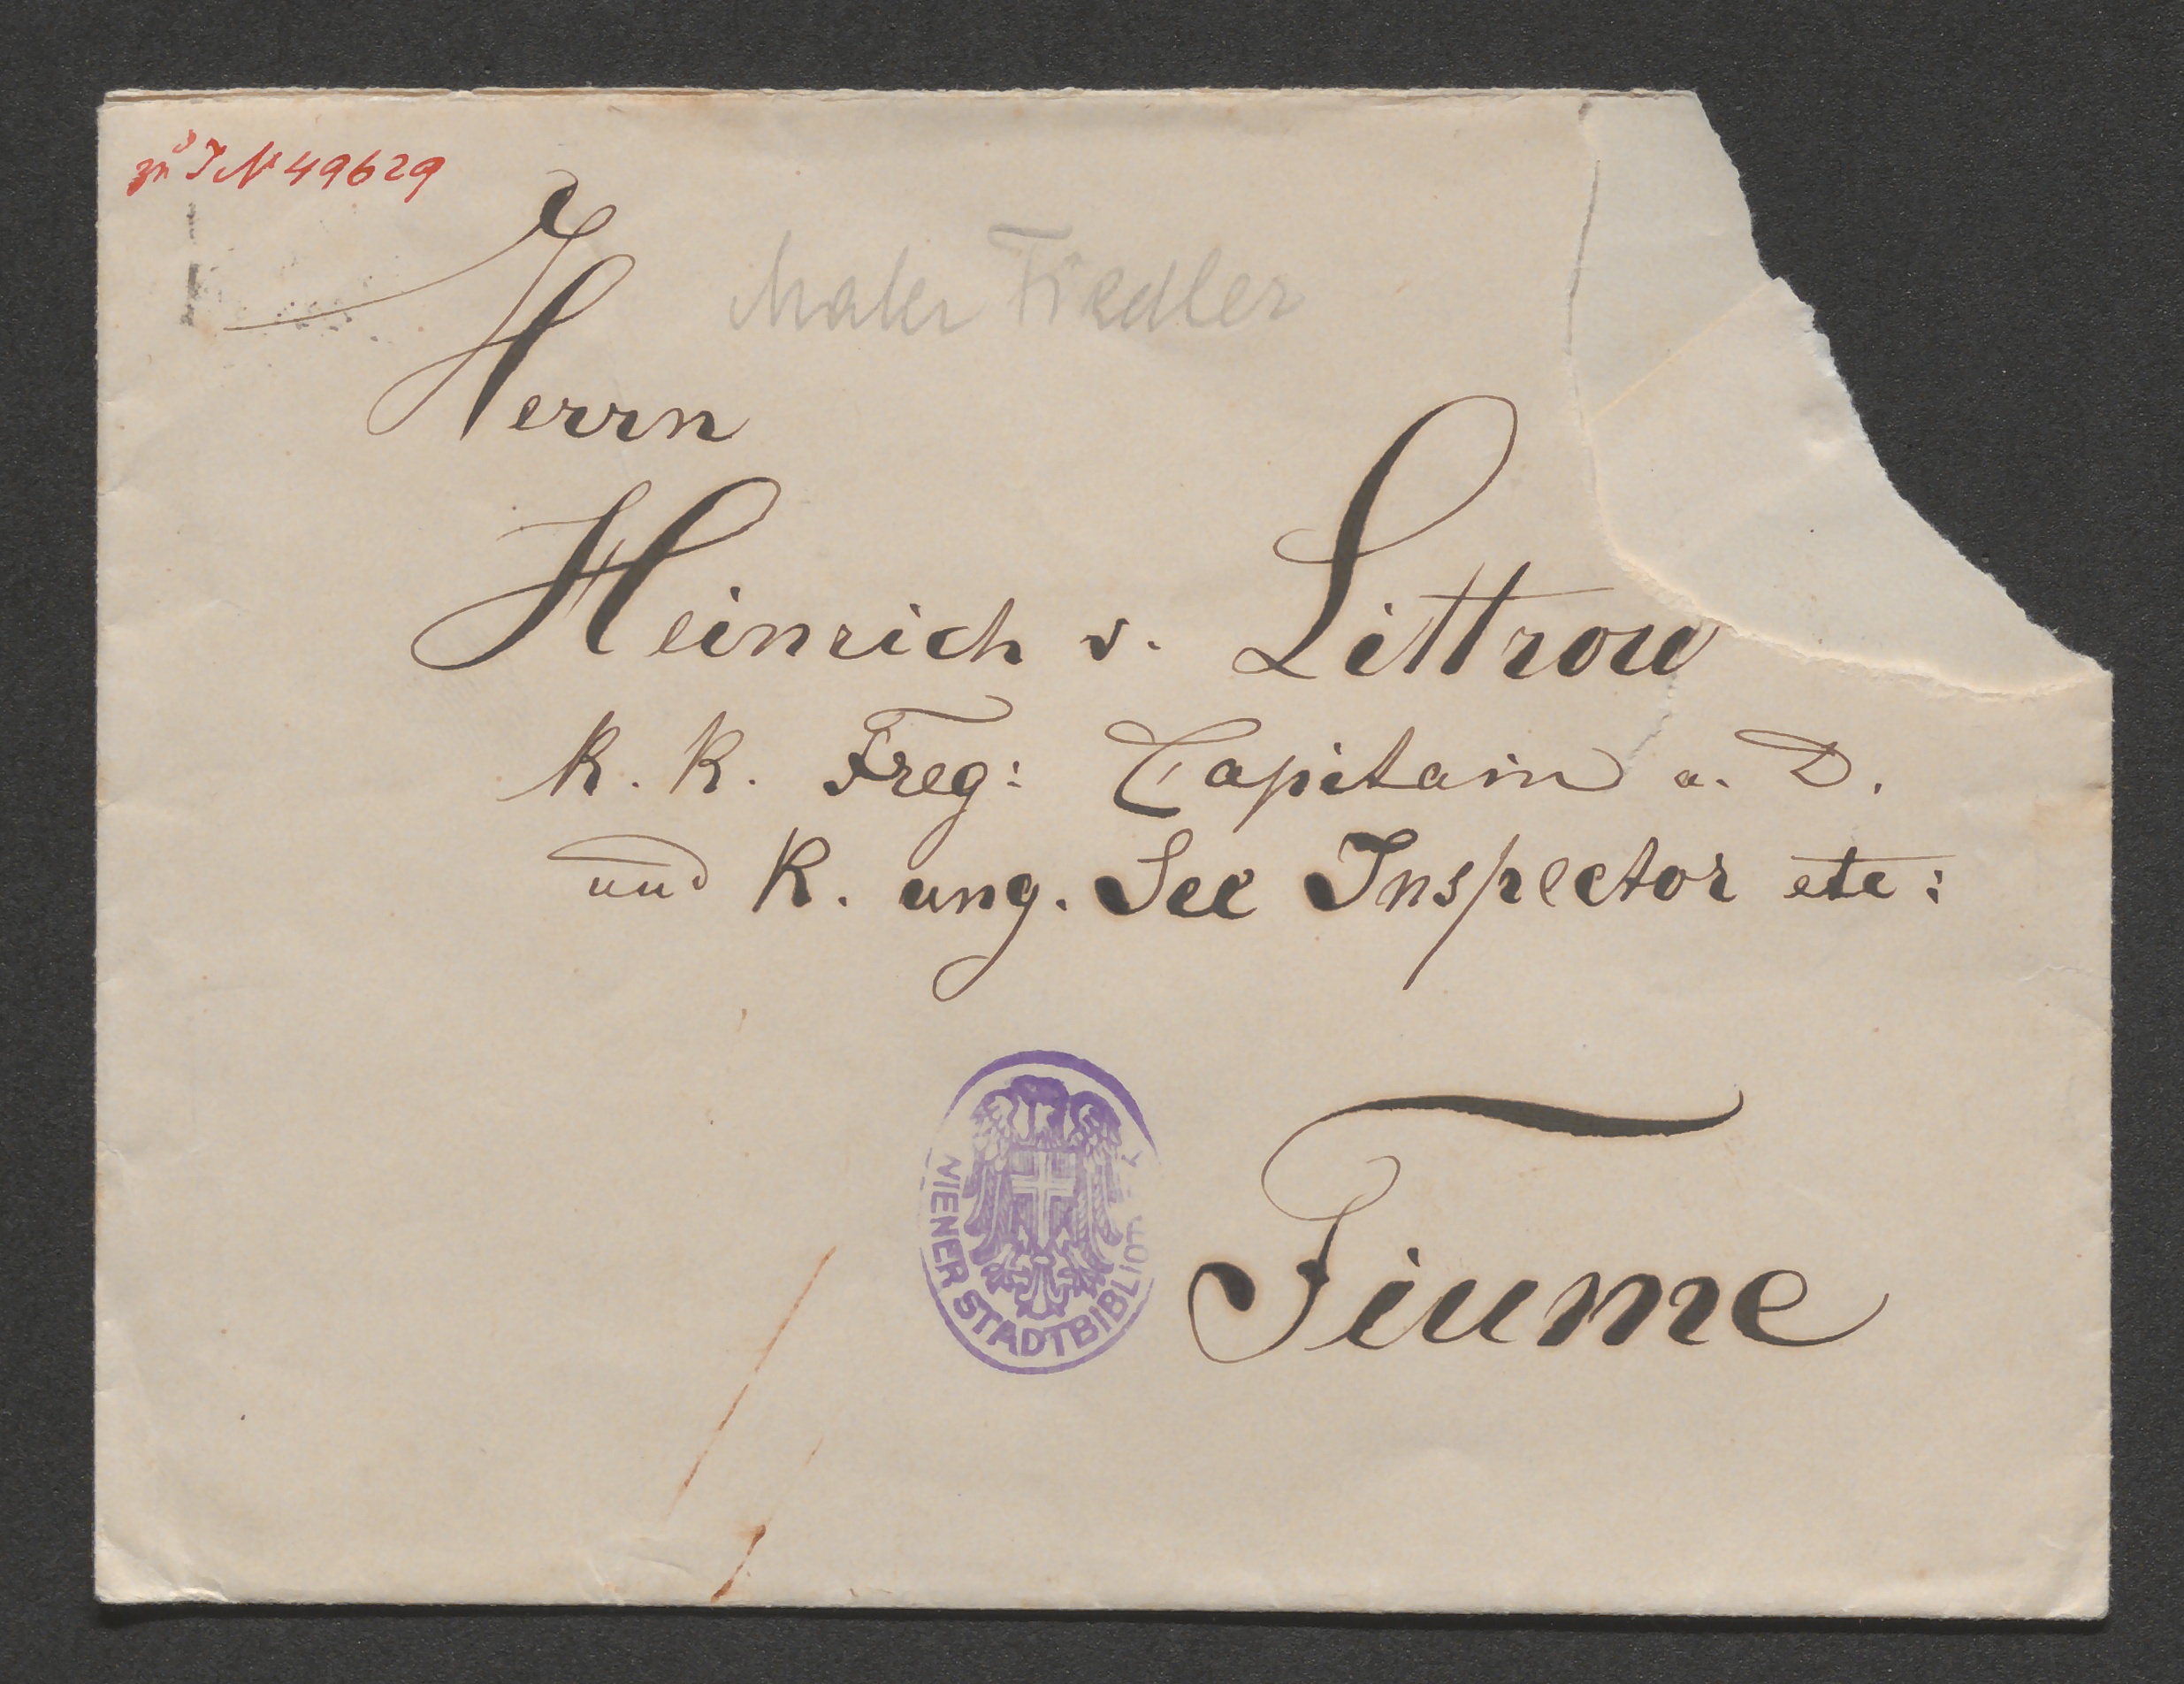 zu I N 49629
Maler Fiedler
Herrn
Heinrich v. Littrow
K. K. Freg: Capitain a. D.
und K. ung. See Inspector etc:
WIENER STADTBIBLIO
Fiume